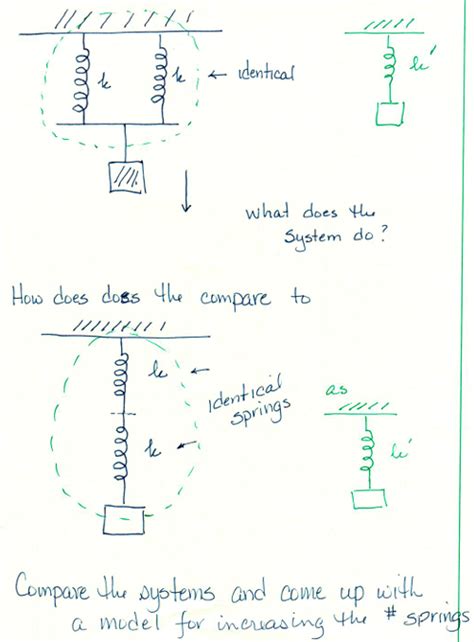 k k ← identical k'
What does the
System do?
How does does the compare to
k ←
Identical
springs
k ←
as
k'
Compare the systems and come up with
a model for increasing the # springs